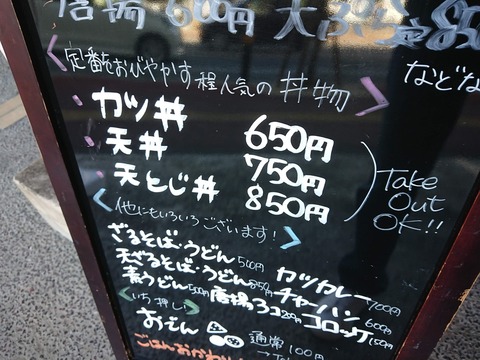 唐揚 600円 大
<定番をおびやかす程人気の丼物>
などな
カツ丼 650円
天丼 750円
天とじ丼 850円
Take
Out
OK!!
<他にもいろいろございます!>
ざるそば・うどん 500円 カツカレー 700円
天ざるそば・うどん 850円 チャーハン 600円
素うどん 500円 唐揚3コ 200円 コロッケ 150円
<いち押し>
おでん 通常 100円
ごはんおかわり